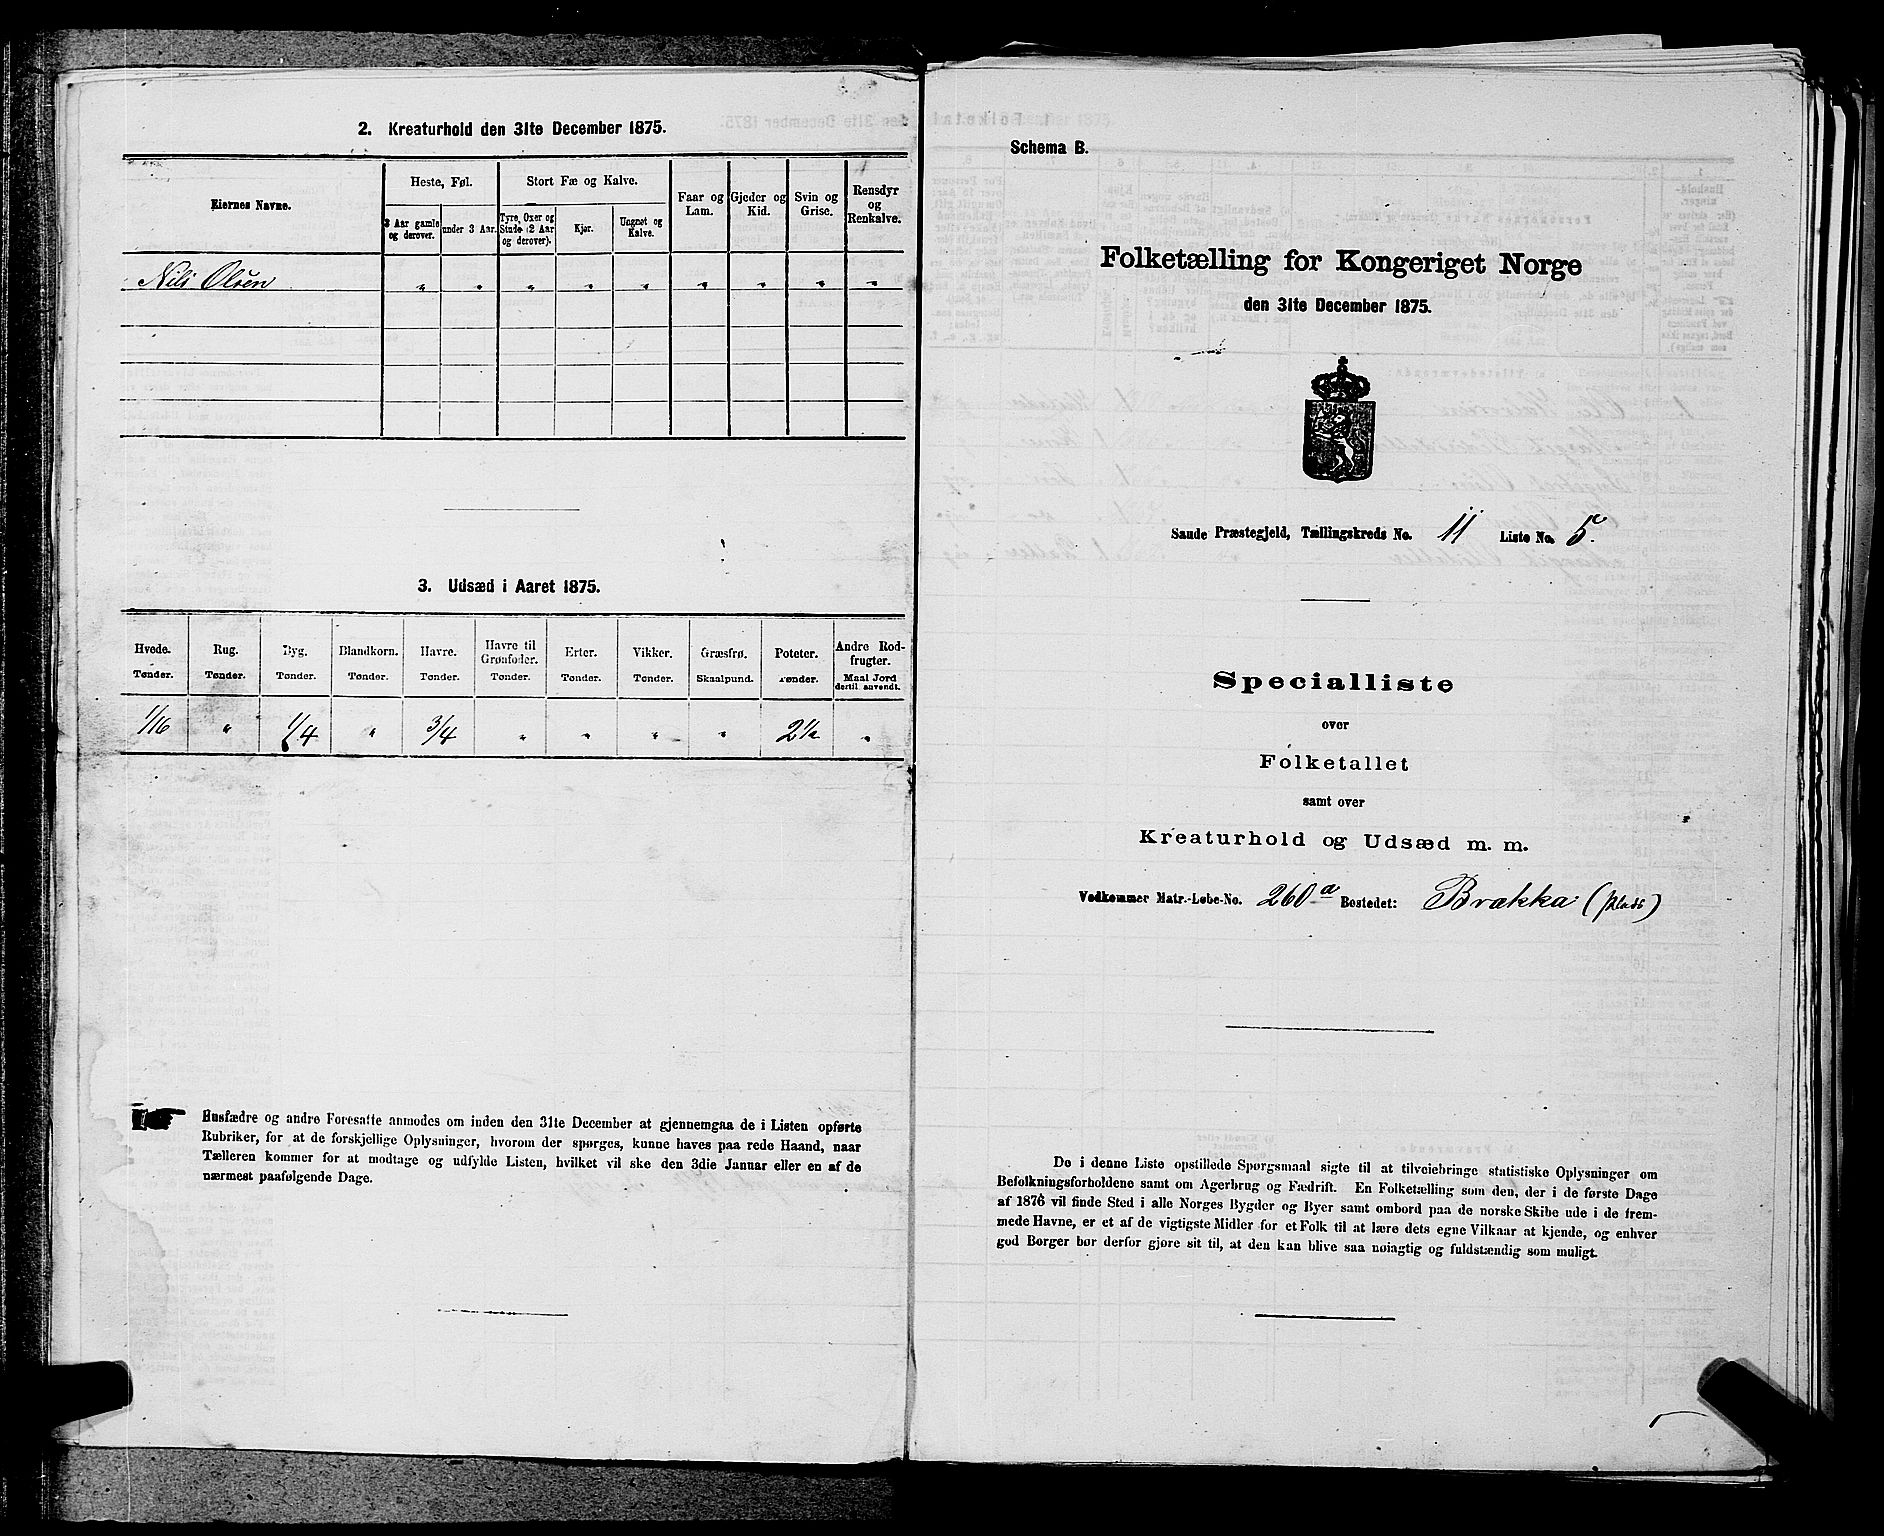 2. Kreaturhold den 31te December 1875.
Eiernes Navne.
Heste, Føl.
Stort Fæ og Kalve.
Faar og
Lam.
Gjeder og
Kid.
Svin og
Grise.
Rensdyr
og
Renkalve.
3 Aar gamle
og derover.
under 3 Aar.
Tyre, Oxer og
Stude (2 Aar
og derover).
Kjør.
Ungnøt og
Kalve.
Nils Olsen " " " " " " " " "
3. Udsæd i Aaret 1875.
Hvede. Rug. Byg. Blandkorn. Havre. Havre til
Grønfoder. Erter. Vikker. Græsfrø. Poteter. Andre Rod-
frugter.
Tønder. Tønder. Tønder. Tønder. Tønder. Tønder. Tønder. Tønder. Skaalpund. Tønder. Maal Jord
dertil anvendt.
1/16 " 1/4 " 3/4 " " " " 2 1/2 "
Husfædre og andre Foresatte anmodes om inden den 31te December at gjennemgaa de i Listen opførte
Rubriker, for at de forskjellige Oplysninger, hvorom der spørges, kunne haves paa rede Haand, naar
Tælleren kommer for at modtage og udfylde Listen, hvilket vil ske den 3die Januar eller en af de
nærmest paafølgende Dage.
Schema B.
Folketælling for Kongeriget Norge
den 31te December 1875.
Sande Præstegjeld, Tællingskreds No. 11 Liste No. 5.
Specialliste
over
Folketallet
samt over
Kreaturhold og Udsæd m. m.
Vedkommer Matr.-Løbe-No. 260 a Bostedet: Brækka (plads)
De i denne Liste opstillede Spørgsmaal sigte til at tilveiebringe statistiske Oplysninger om
Befolkningsforholdene samt om Agerbrug og Fædrift. En Folketælling som den, der i de første Dage
af 1876 vil finde Sted i alle Norges Bygder og Byer samt ombord paa de norske Skibe ude i de frem-
mede Havne, er et af de vigtigste Midler for et Folk til at lære dets egne Vilkaar at kjende, og enhver
god Borger bør derfor gjøre sit til, at den kan blive saa nøiagtig og fuldstændig som muligt.